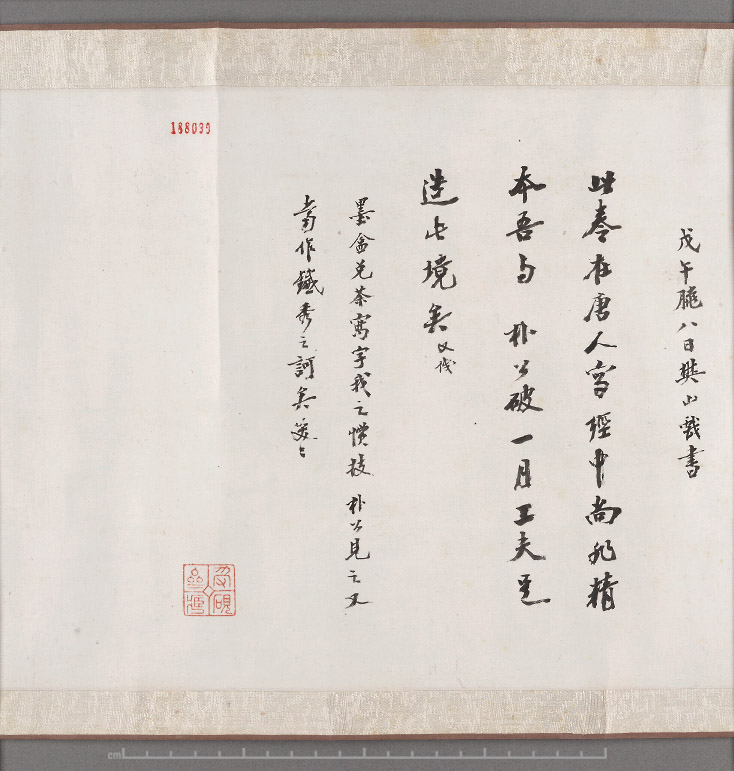 戊午臘八日樊山戲書
此卷在唐人寫經中尚非精
本吾与朴公破一月工夫足
造此境矣又戲
墨盒兑茶寫字我之慣技朴公見之又
當作鐵秀之訶矣笑々
188039
cm